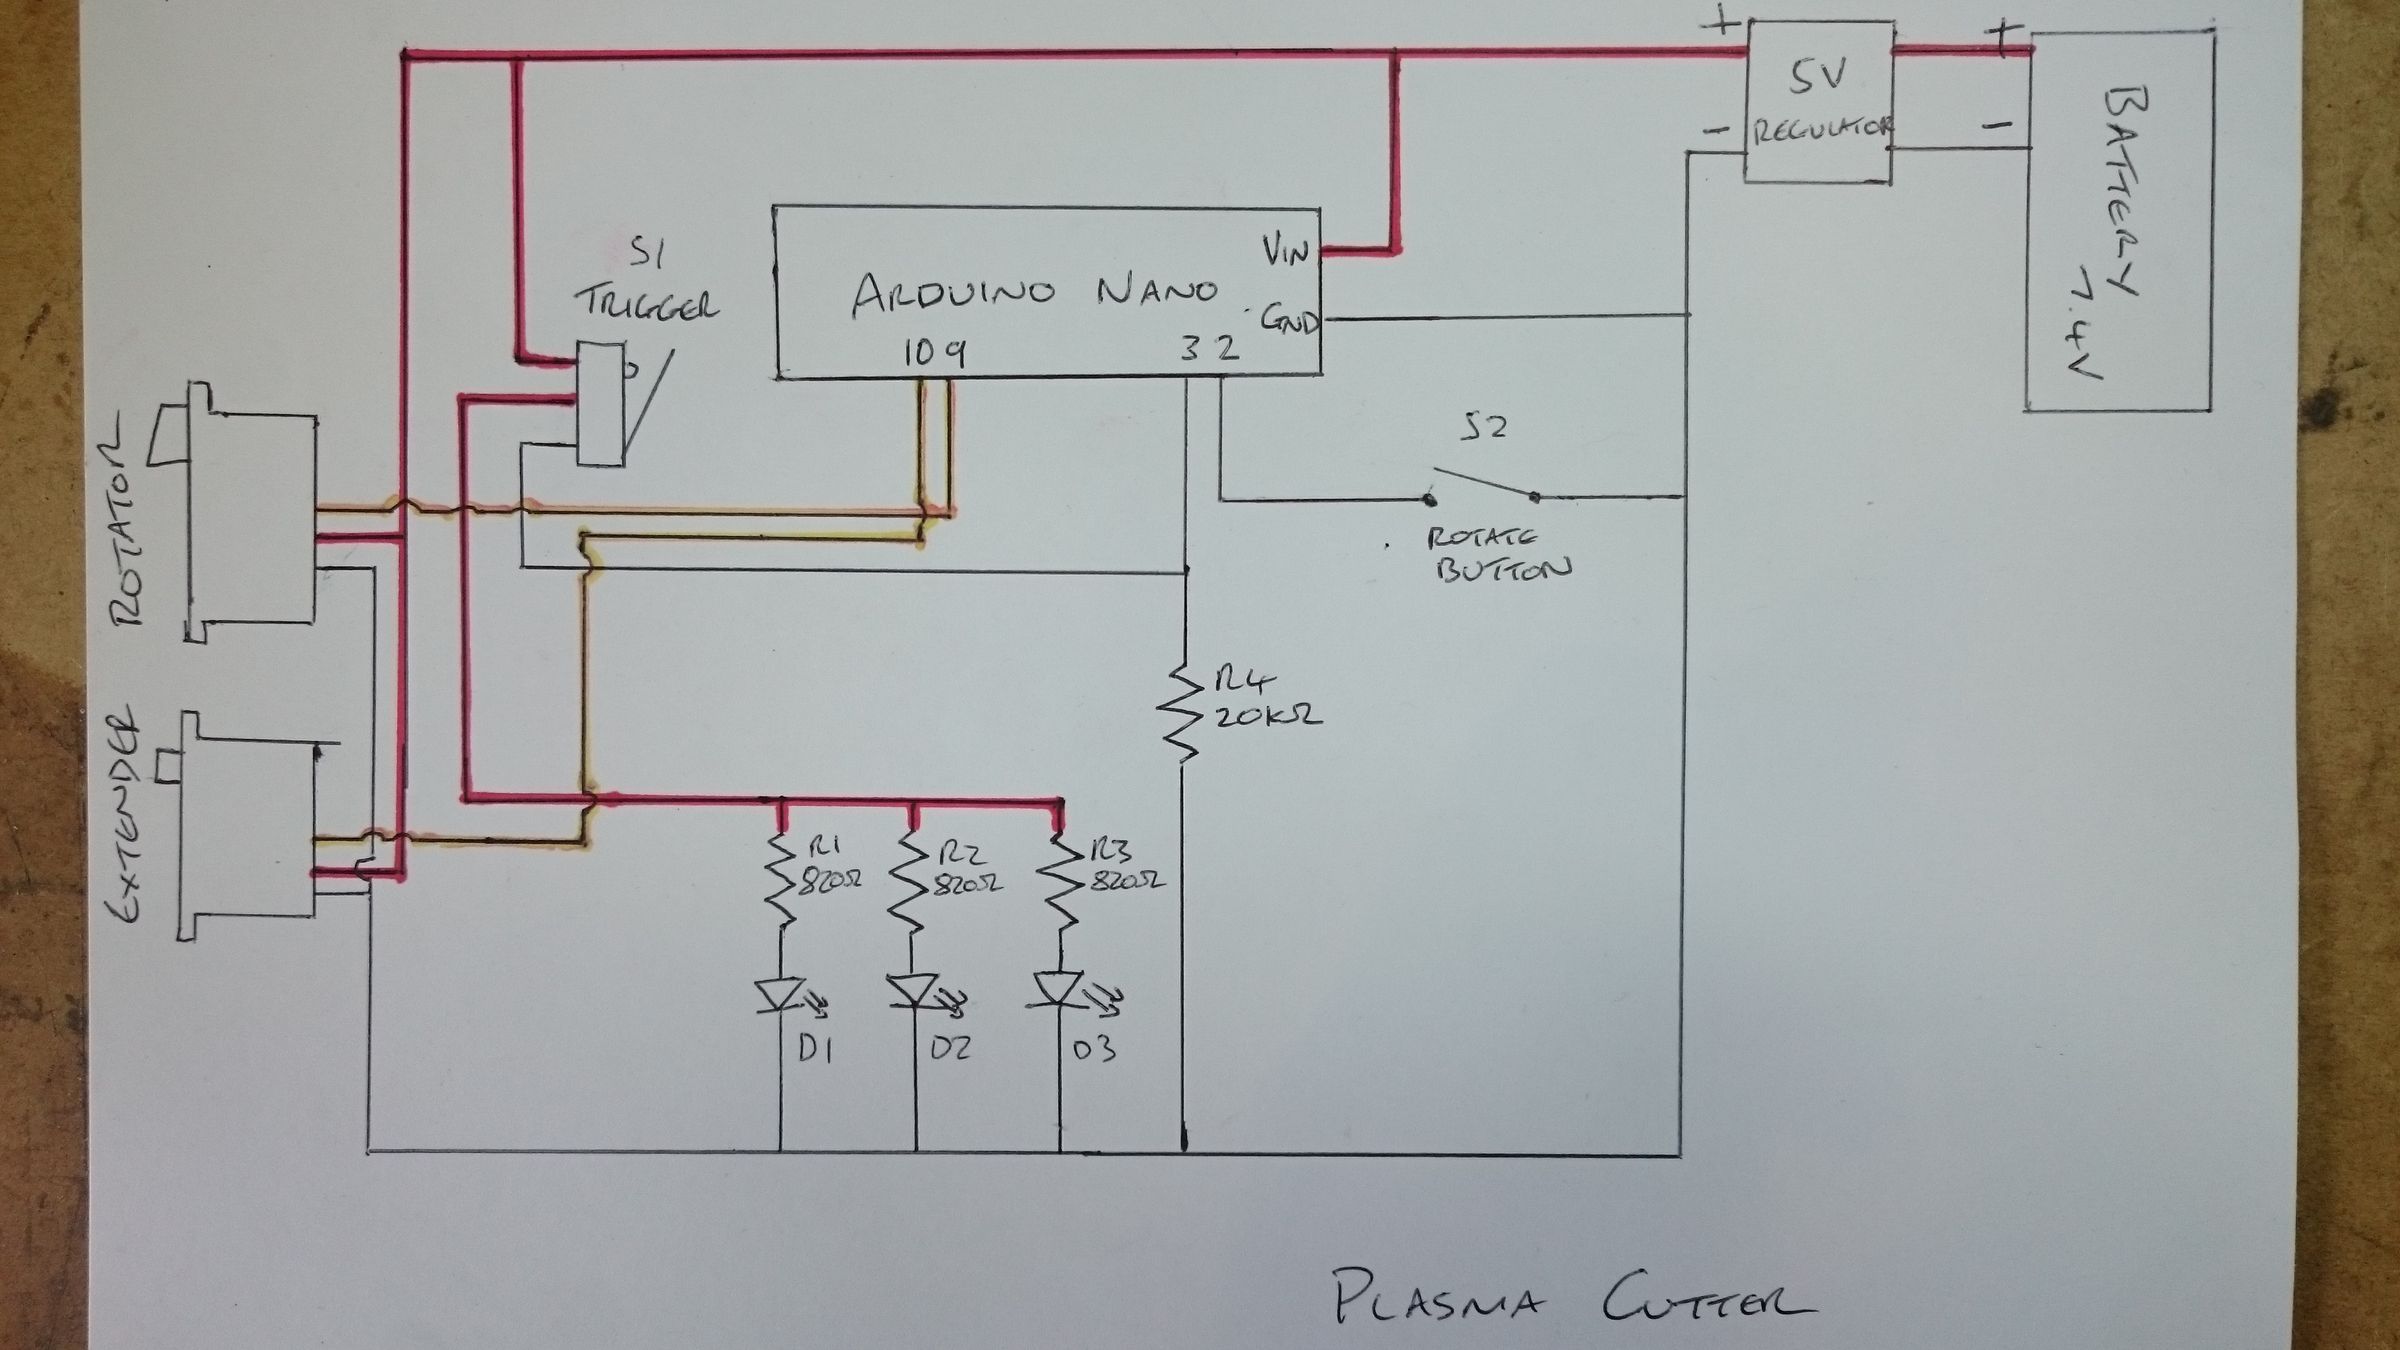 +
+
5V
REGULATOR
-
-
BATTERY
7.4V
S1
TRIGGER
VIN
ARDUINO NANO
GND
10 9
3 2
S2
ROTATE
BUTTON
ROTATOR
EXTENDER
R4
20KΩ
R1
820Ω
R2
820Ω
R3
820Ω
D1
D2
D3
PLASMA CUTTER